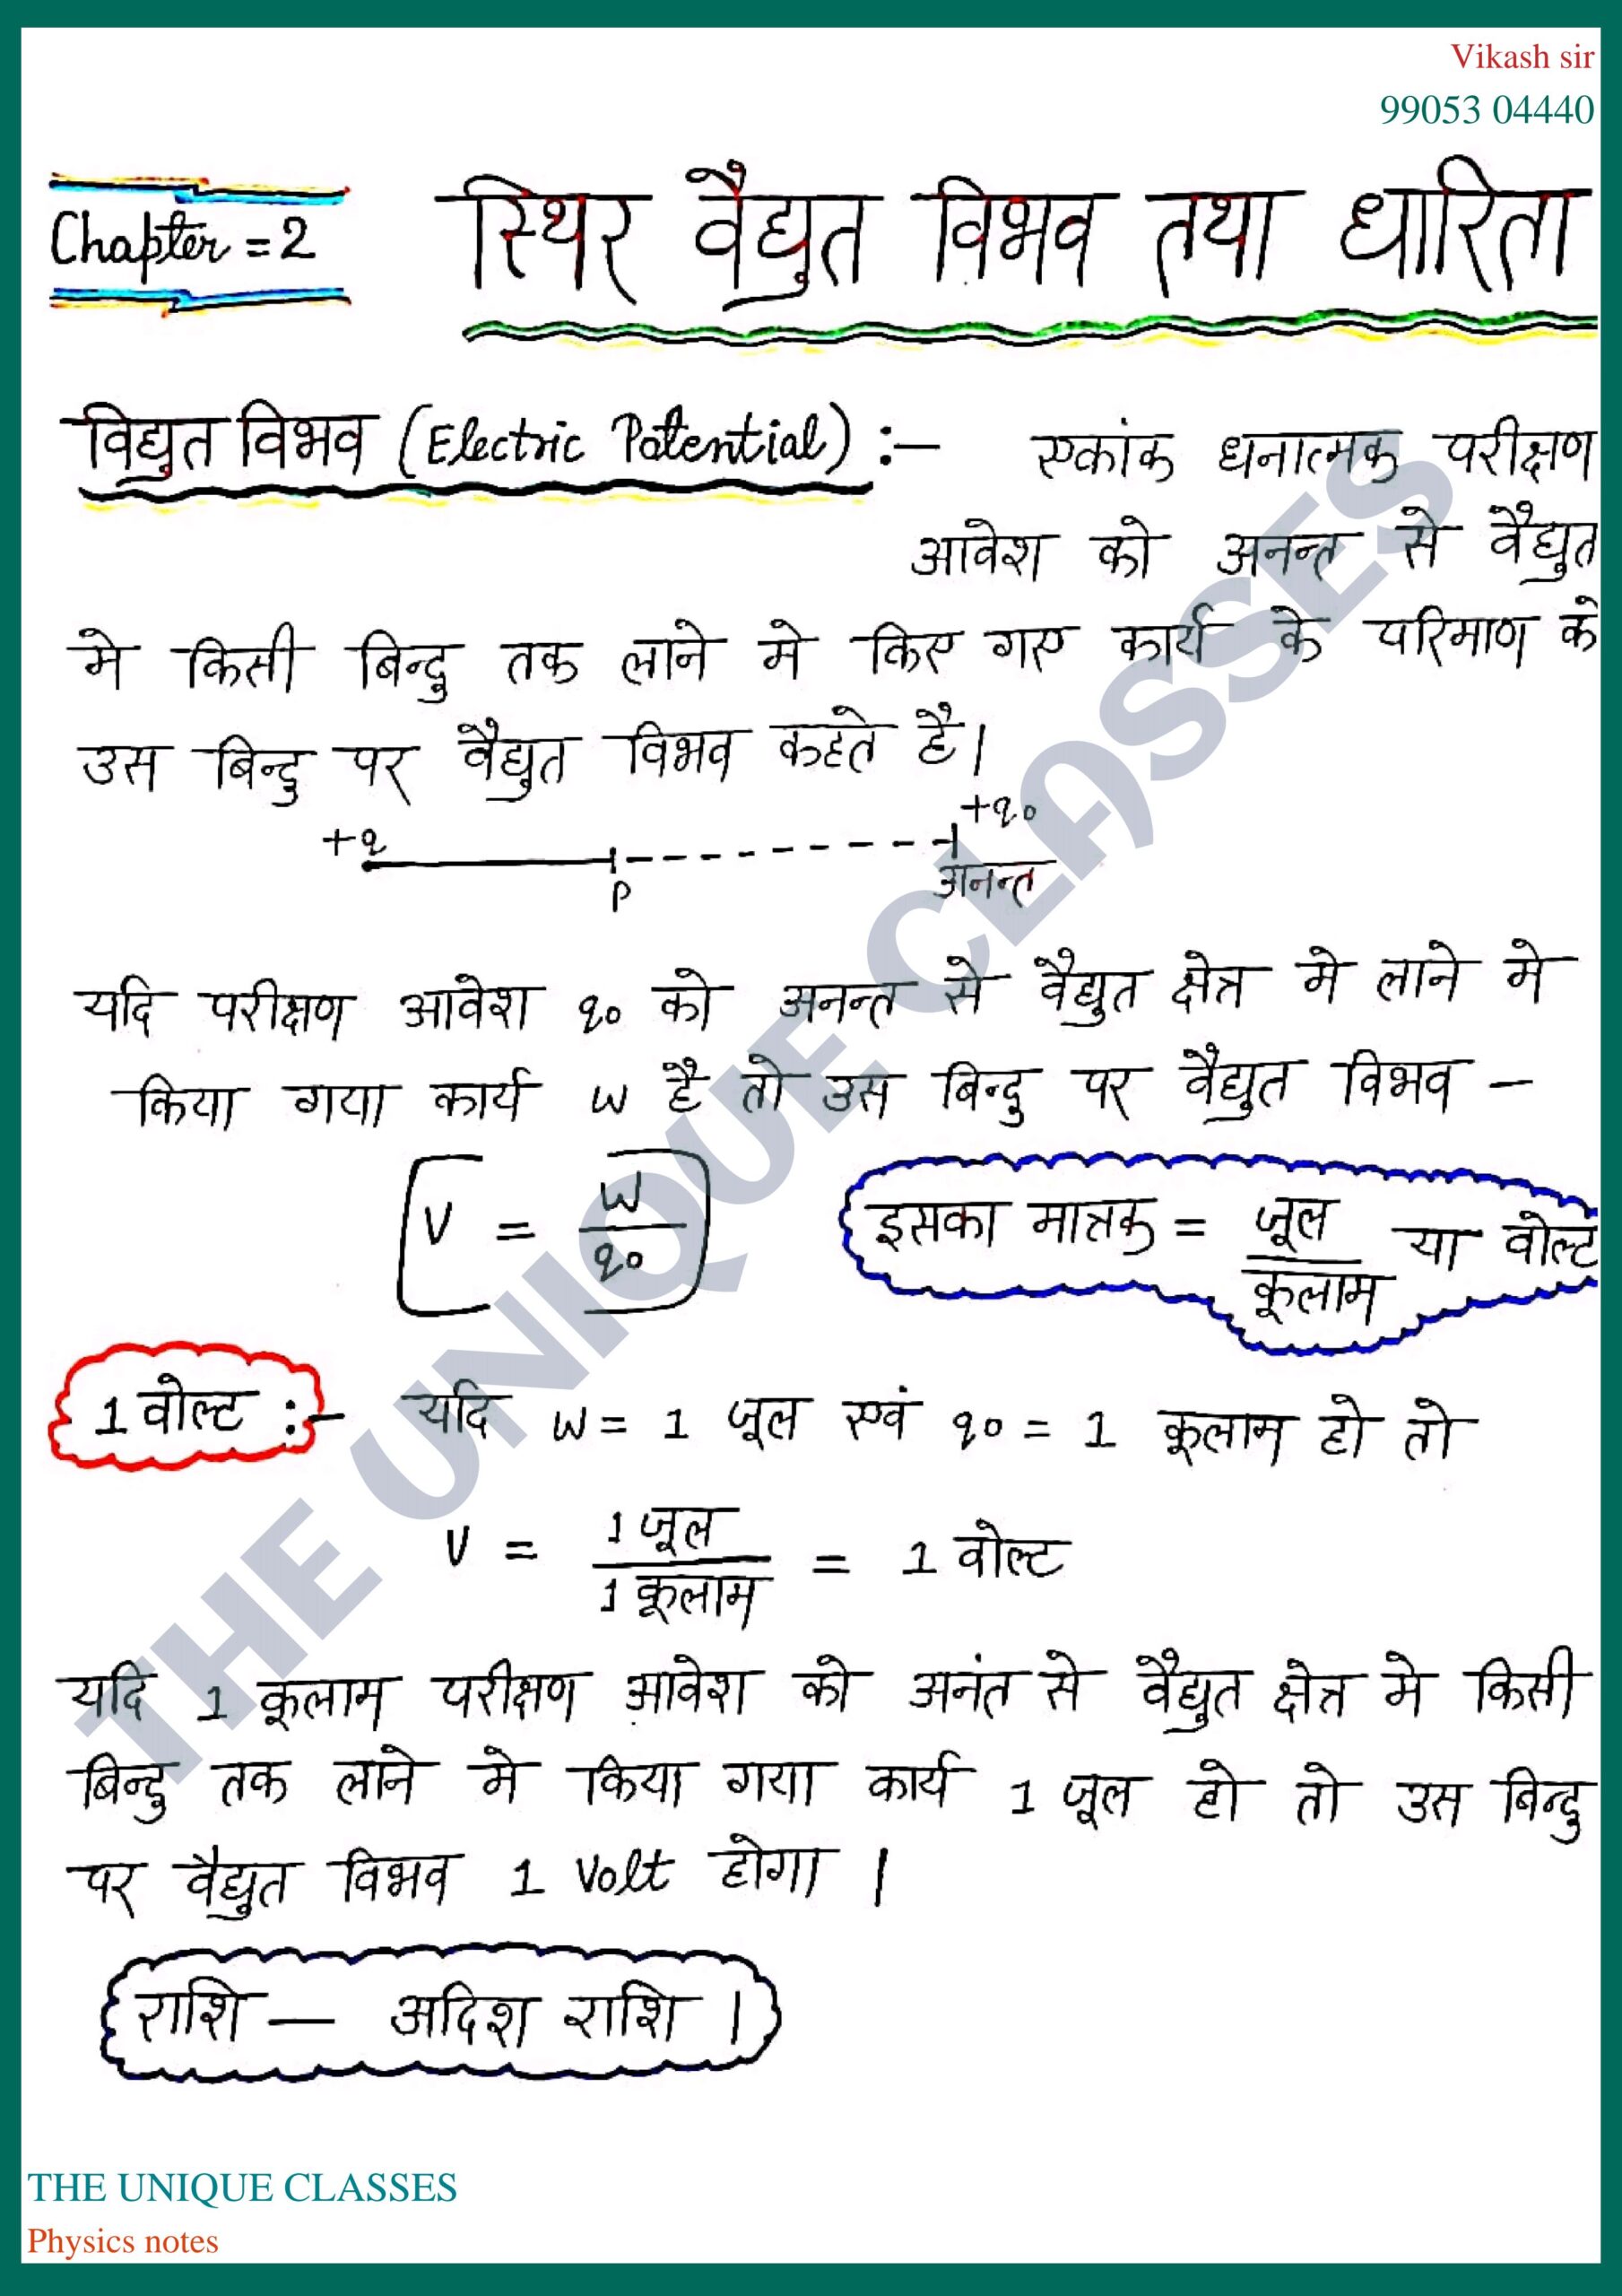 Vikash sir
99053 04440
Chapter = 2 स्थिर वैद्युत विभव तथा धारिता
विद्युत विभव (Electric Potential) :- एकांक धनात्मक परीक्षण
आवेश को अनन्त से वैद्युत
मे किसी बिन्दु तक लाने मे किए गए कार्य के परिमाण के
उस बिन्दु पर वैद्युत विभव कहते है।
+q P +q₀
अनन्त
यदि परीक्षण आवेश q₀ को अनन्त से वैद्युत क्षेत्र मे लाने मे
किया गया कार्य W है तो उस बिन्दु पर वैद्युत विभव –
V = W/q₀ इसका मात्रक = जूल/कूलाम या वोल्ट
1 वोल्ट :- यदि W = 1 जूल एवं q₀ = 1 कूलाम हो तो
V = 1 जूल/1 कूलाम = 1 वोल्ट
यदि 1 कूलाम परीक्षण आवेश को अनंत से वैद्युत क्षेत्र मे किसी
बिन्दु तक लाने मे किया गया कार्य 1 जूल हो तो उस बिन्दु
पर वैद्युत विभव 1 Volt होगा ।
राशि — अदिश राशि ।
THE UNIQUE CLASSES
THE UNIQUE CLASSES
Physics notes